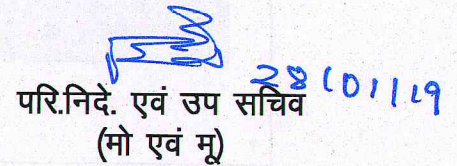 28/01/19
परि.निदे. एवं उप सचिव
(मो एवं मू)